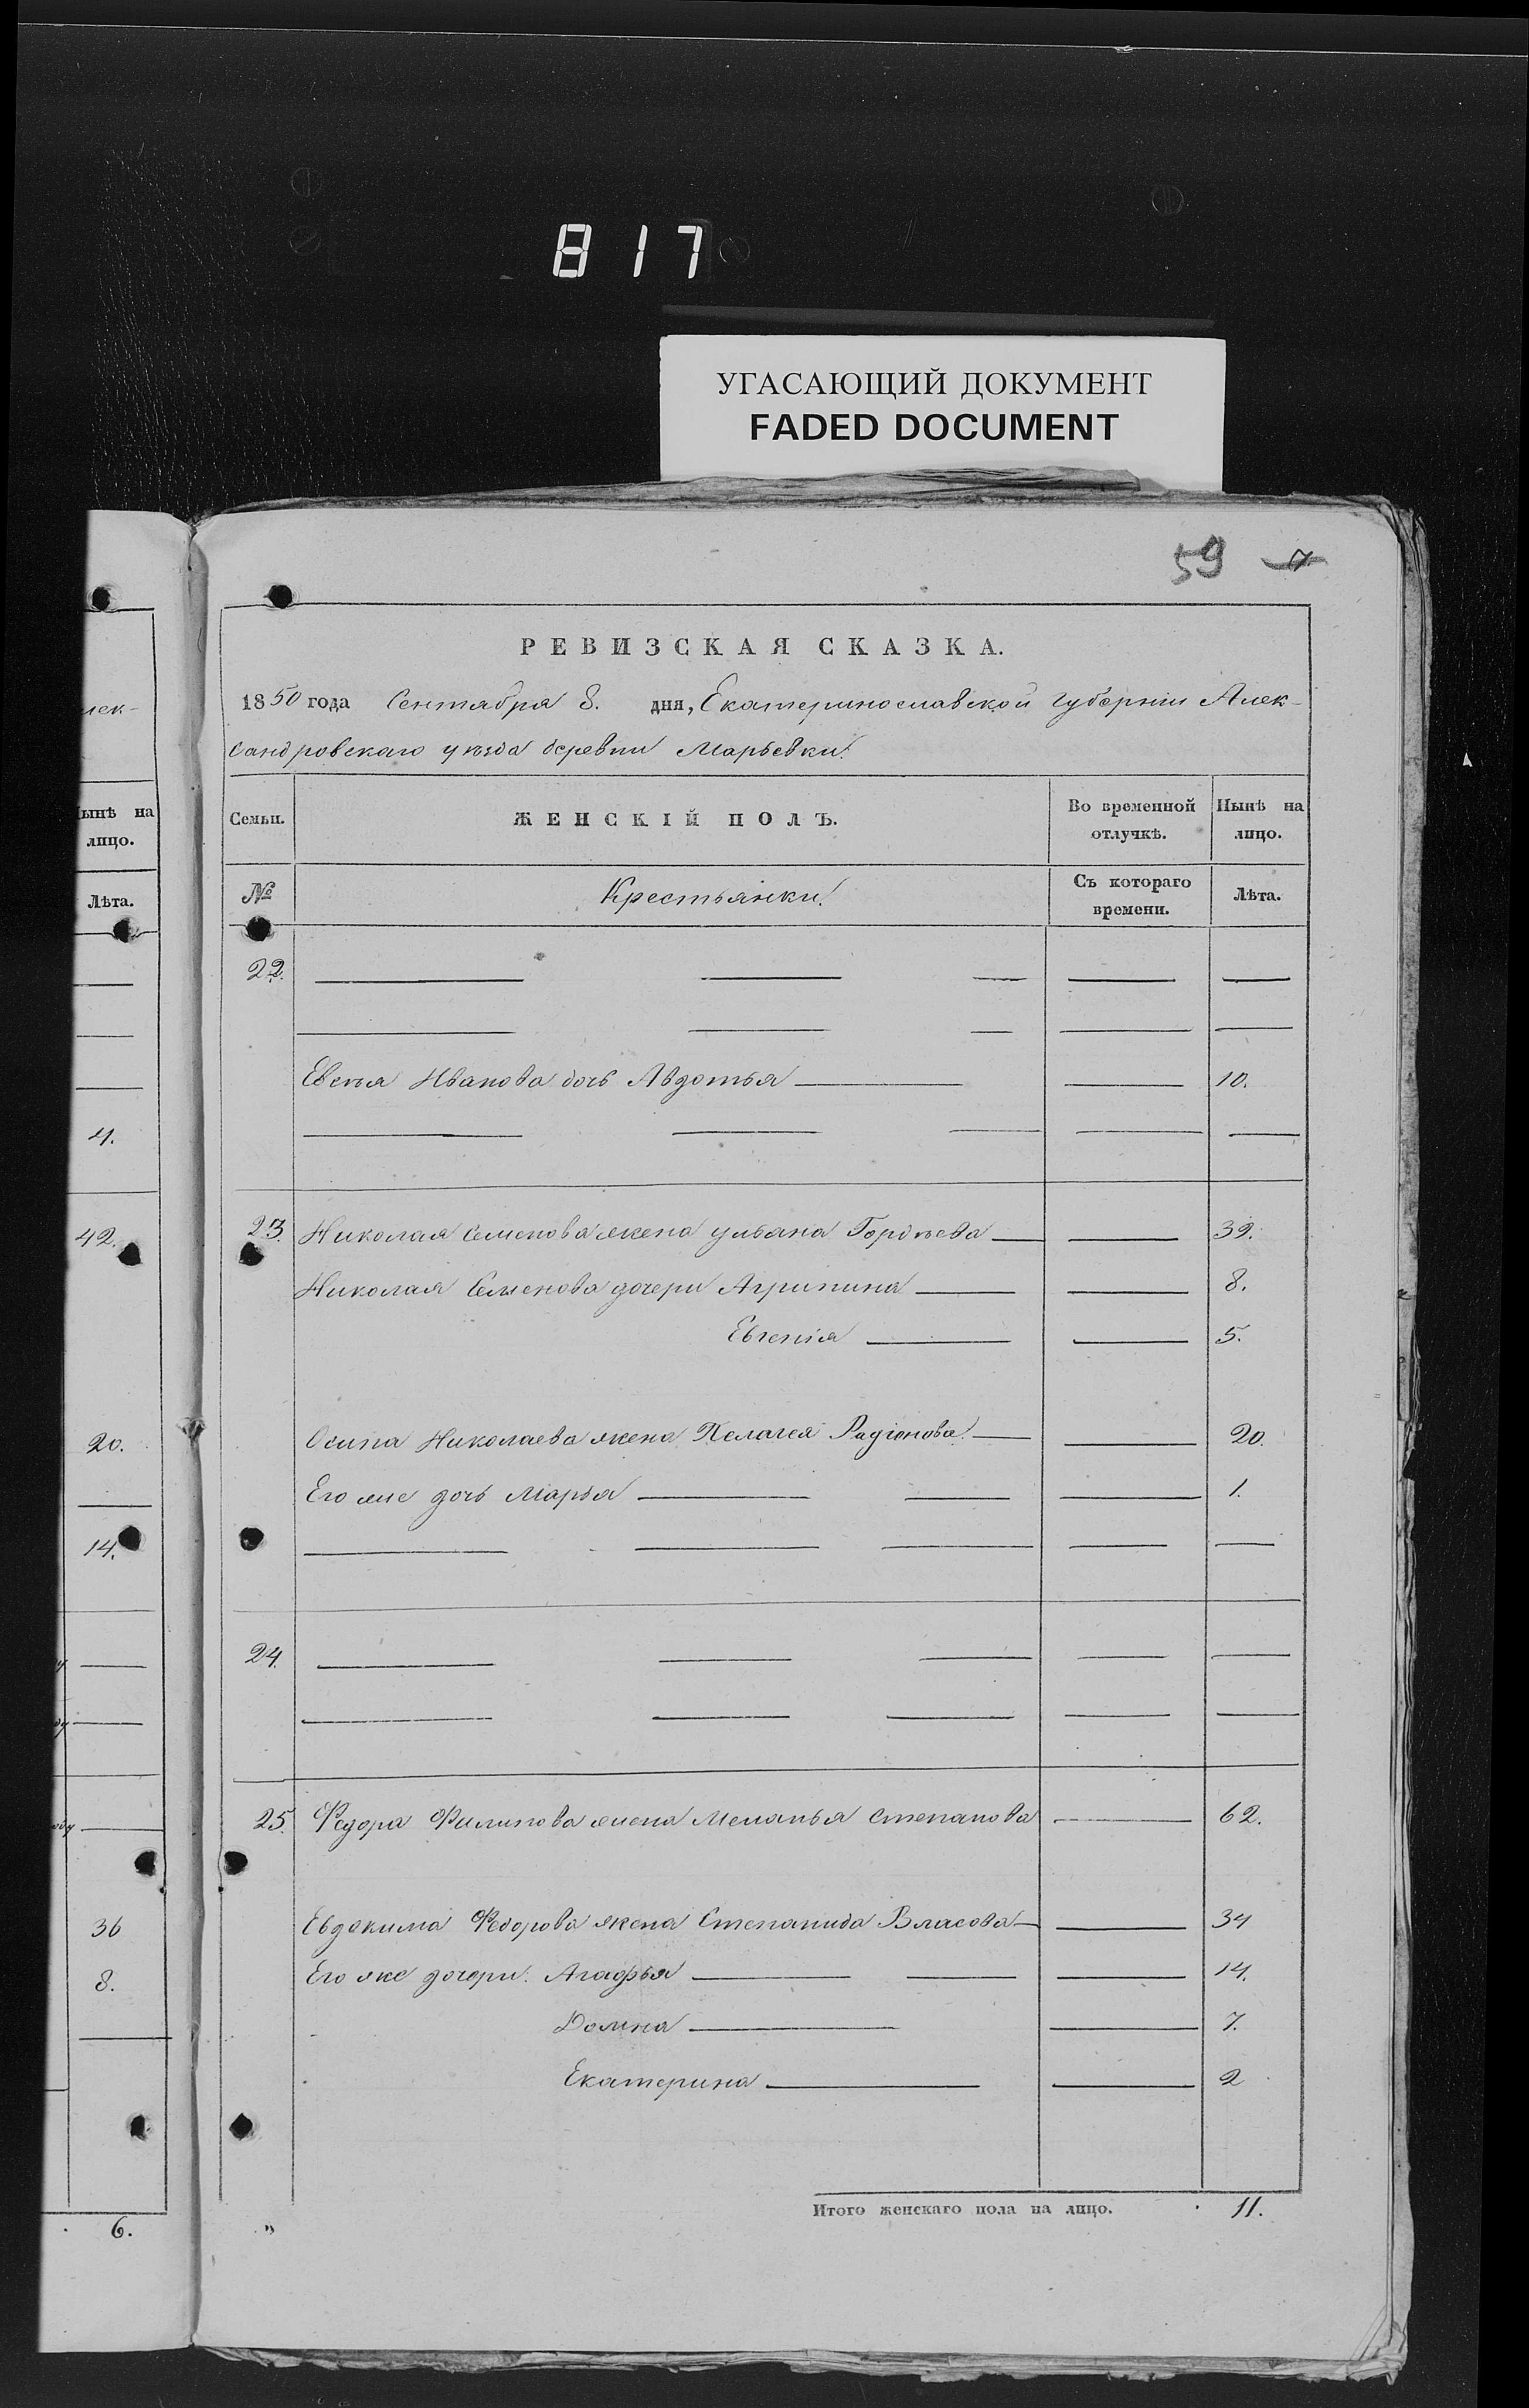 817
УГАСАЮЩИЙ ДОКУМЕНТ
FADED DOCUMENT
59
РЕВИЗСКАЯ СКАЗКА.
1850 года Сентября 8. дня, Екатеринославской губернии Алек-
сандровскаго уѣзда деревни Марьевки.
Семьи. ЖЕНСКІЙ ПОЛЪ. Во временной отлучкѣ. Нынѣ на лицо.
№ Крестьянки. Съ котораго времени. Лѣта.
22.
Иванова дочь Авдотья 10.
23. Николая Семенова жена Ульяна Гордѣева 39.
Николая Семенова дочери Агрипина 8.
Евгенія 5.
Осипа Николаева жена Пелагея Радіонова 20.
Его же дочь Марья 1.
24.
25. Федора Филипова жена Меланья Степанова 62.
Евдокима Федорова жена Степанида Власова 34
Его же дочери Агафья 14.
Домна 7.
Екатерина 2
Итого женскаго пола на лицо. 11.
лек-
Нынѣ на
лицо.
Лѣта.
4.
42.
20.
14.
36
8.
6.